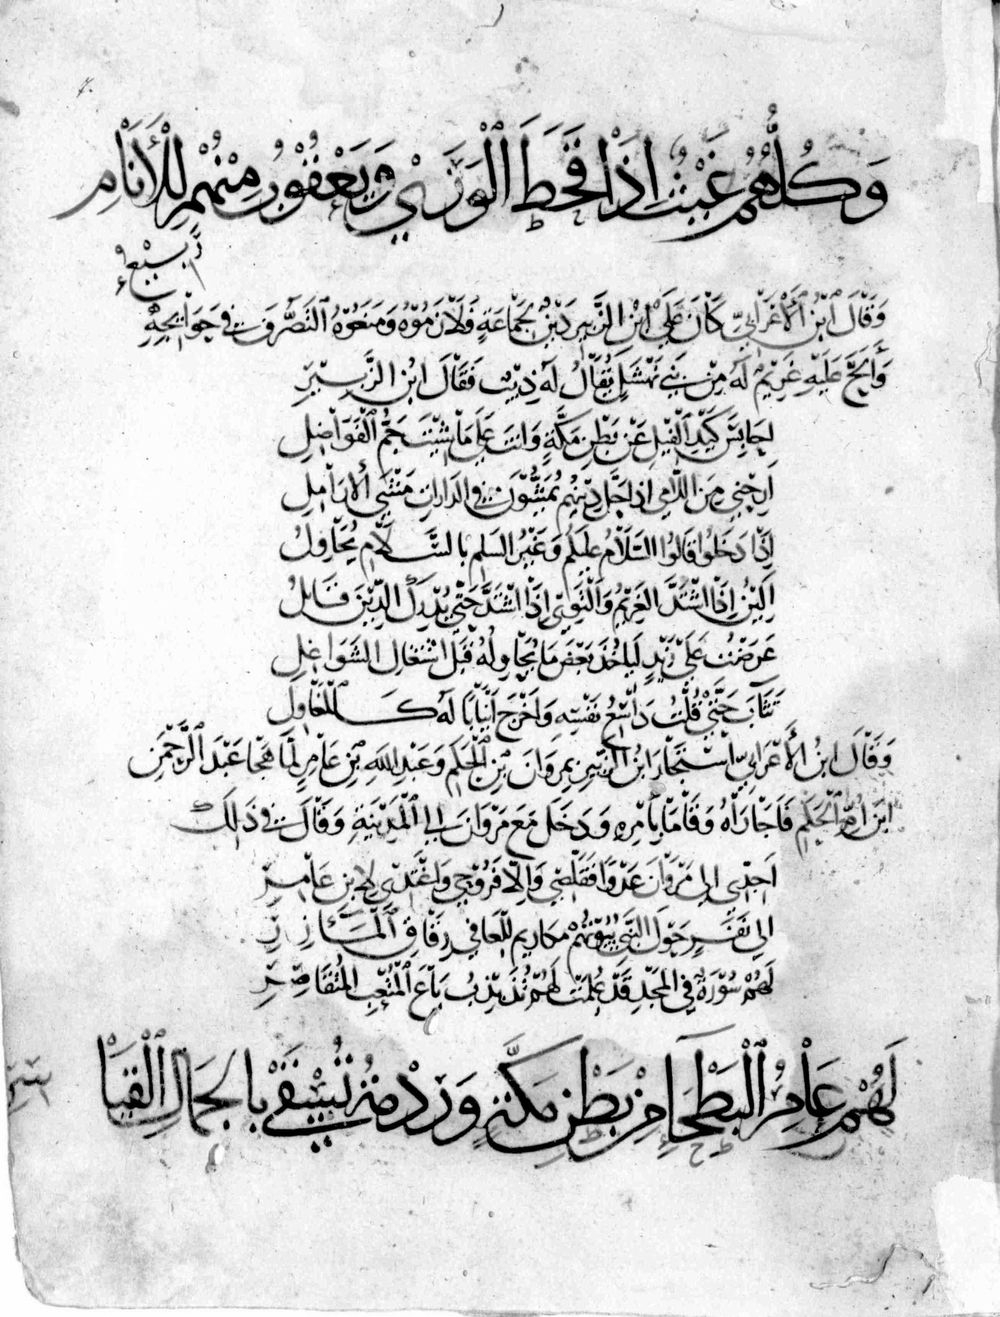 وَكُلُّهُمُ غَيْثٌ اِذَا قَحَطَ الْوَرَى وَيَعْفُورُ مِنْهُمْ لِلْأَنَامِ
رَبِيعُ
وَقَالَ ابْنُ الْأَعْرَابِيِّ كَانَ عَلَى ابْنِ الزَّبِيرِ دَيْنٌ لِجَمَاعَةٍ فَلَازَمُوْهُ وَمَنَعُوْهُ التَّصَرُّفَ فِي حَوَائِجِهِ
وَأَلَحَّ عَلَيْهِ غَرِيْمٌ لَهُ مِنْ بَنِي نَهْشَلٍ يُقَالُ لَهُ ذِئْبٌ فَقَالَ ابْنُ الزَّبِيْرِ
احَابِسَ كَيْدِ الْفِيْلِ عَنْ بَطْنِ مَكَّةٍ وَانْتَ عَلَى مَا شِئْتَ جَمُّ الْفَوَاضِلِ
اَرِحْنِي مِنَ اللَّائِي اِذَا حَلَّ دَيْنُهُمْ يُمَشُّوْنَ فِي الدَّارَاتِ مَشْيَ الْأَرَامِلِ
اِذَا دَخَلُوا قَالُوا السَّلَامُ عَلَيْكُمُ وَغَيْرُ السَّلَمِ بِالسَّلَامِ يُحَاوِلُ
اَلِيْنُ اِذَا اشْتَدَّ الْغَرِيْمُ وَالْتَوِي اِذَا اشْتَدَّ حَتَّى يُدْرِكَ الدَّيْنَ قَابِلُ
عَرَضْتُ عَلَى زَيْدٍ لِيَاخُذَ بَعْضَ مَا يُحَاوِلُهُ قَبْلَ اشْتِغَالِ الشَّوَاغِلِ
تَثَاَّبَ حَتَّى قُلْتُ دَاسِعُ نَفْسِهِ وَاَخْرَجَ اَنْيَابًا لَهُ كَالْمَعَاوِلِ
وَقَالَ ابْنُ الْأَعْرَابِيِّ اسْتَجَارَ ابْنُ الزَّبِيْرِ بِمَرْوَانَ بْنِ الْحَكَمِ وَعَبْدِ اللهِ بْنِ عَامِرٍ لَمَّا هَجَا عَبْدَ الرَّحْمٰنِ
ابْنَ اُمِّ الْحَكَمِ فَاَجَارَاهُ وَقَامَا بِاَمْرِهِ وَدَخَلَ مَعَ مَرْوَانَ اِلَى الْمَدِيْنَةِ وَقَالَ فِي ذَلِكَ
اَجِدِّي اِلَى مَرْوَانَ عَدْوًا فَقَلِّصِي وَاِلَّا فَرُوْحِي وَاغْتَدِي لِابْنِ عَامِرِ
اِلَى نَفَرٍ حَوْلَ النَّبِيِّ بُيُوْتُهُمْ مَكَارِيْمَ لِلْعَافِي رِقَاقِ الْمَآزِرِ
لَهُمْ سُوْرَةٌ فِي الْمَجْدِ قَدْ عُلِمَتْ لَهُمْ تُذَبْذِبُ بَاعَ الْمُتْعَبِ الْمُتَقَاصِرِ
لَهُمْ عَامِرُ الْبَطْحَاءِ مِنْ بَطْنِ مَكَّةٍ وَرُوْمَةُ تُسْقَى بِالْجِمَالِ الْقَيَا